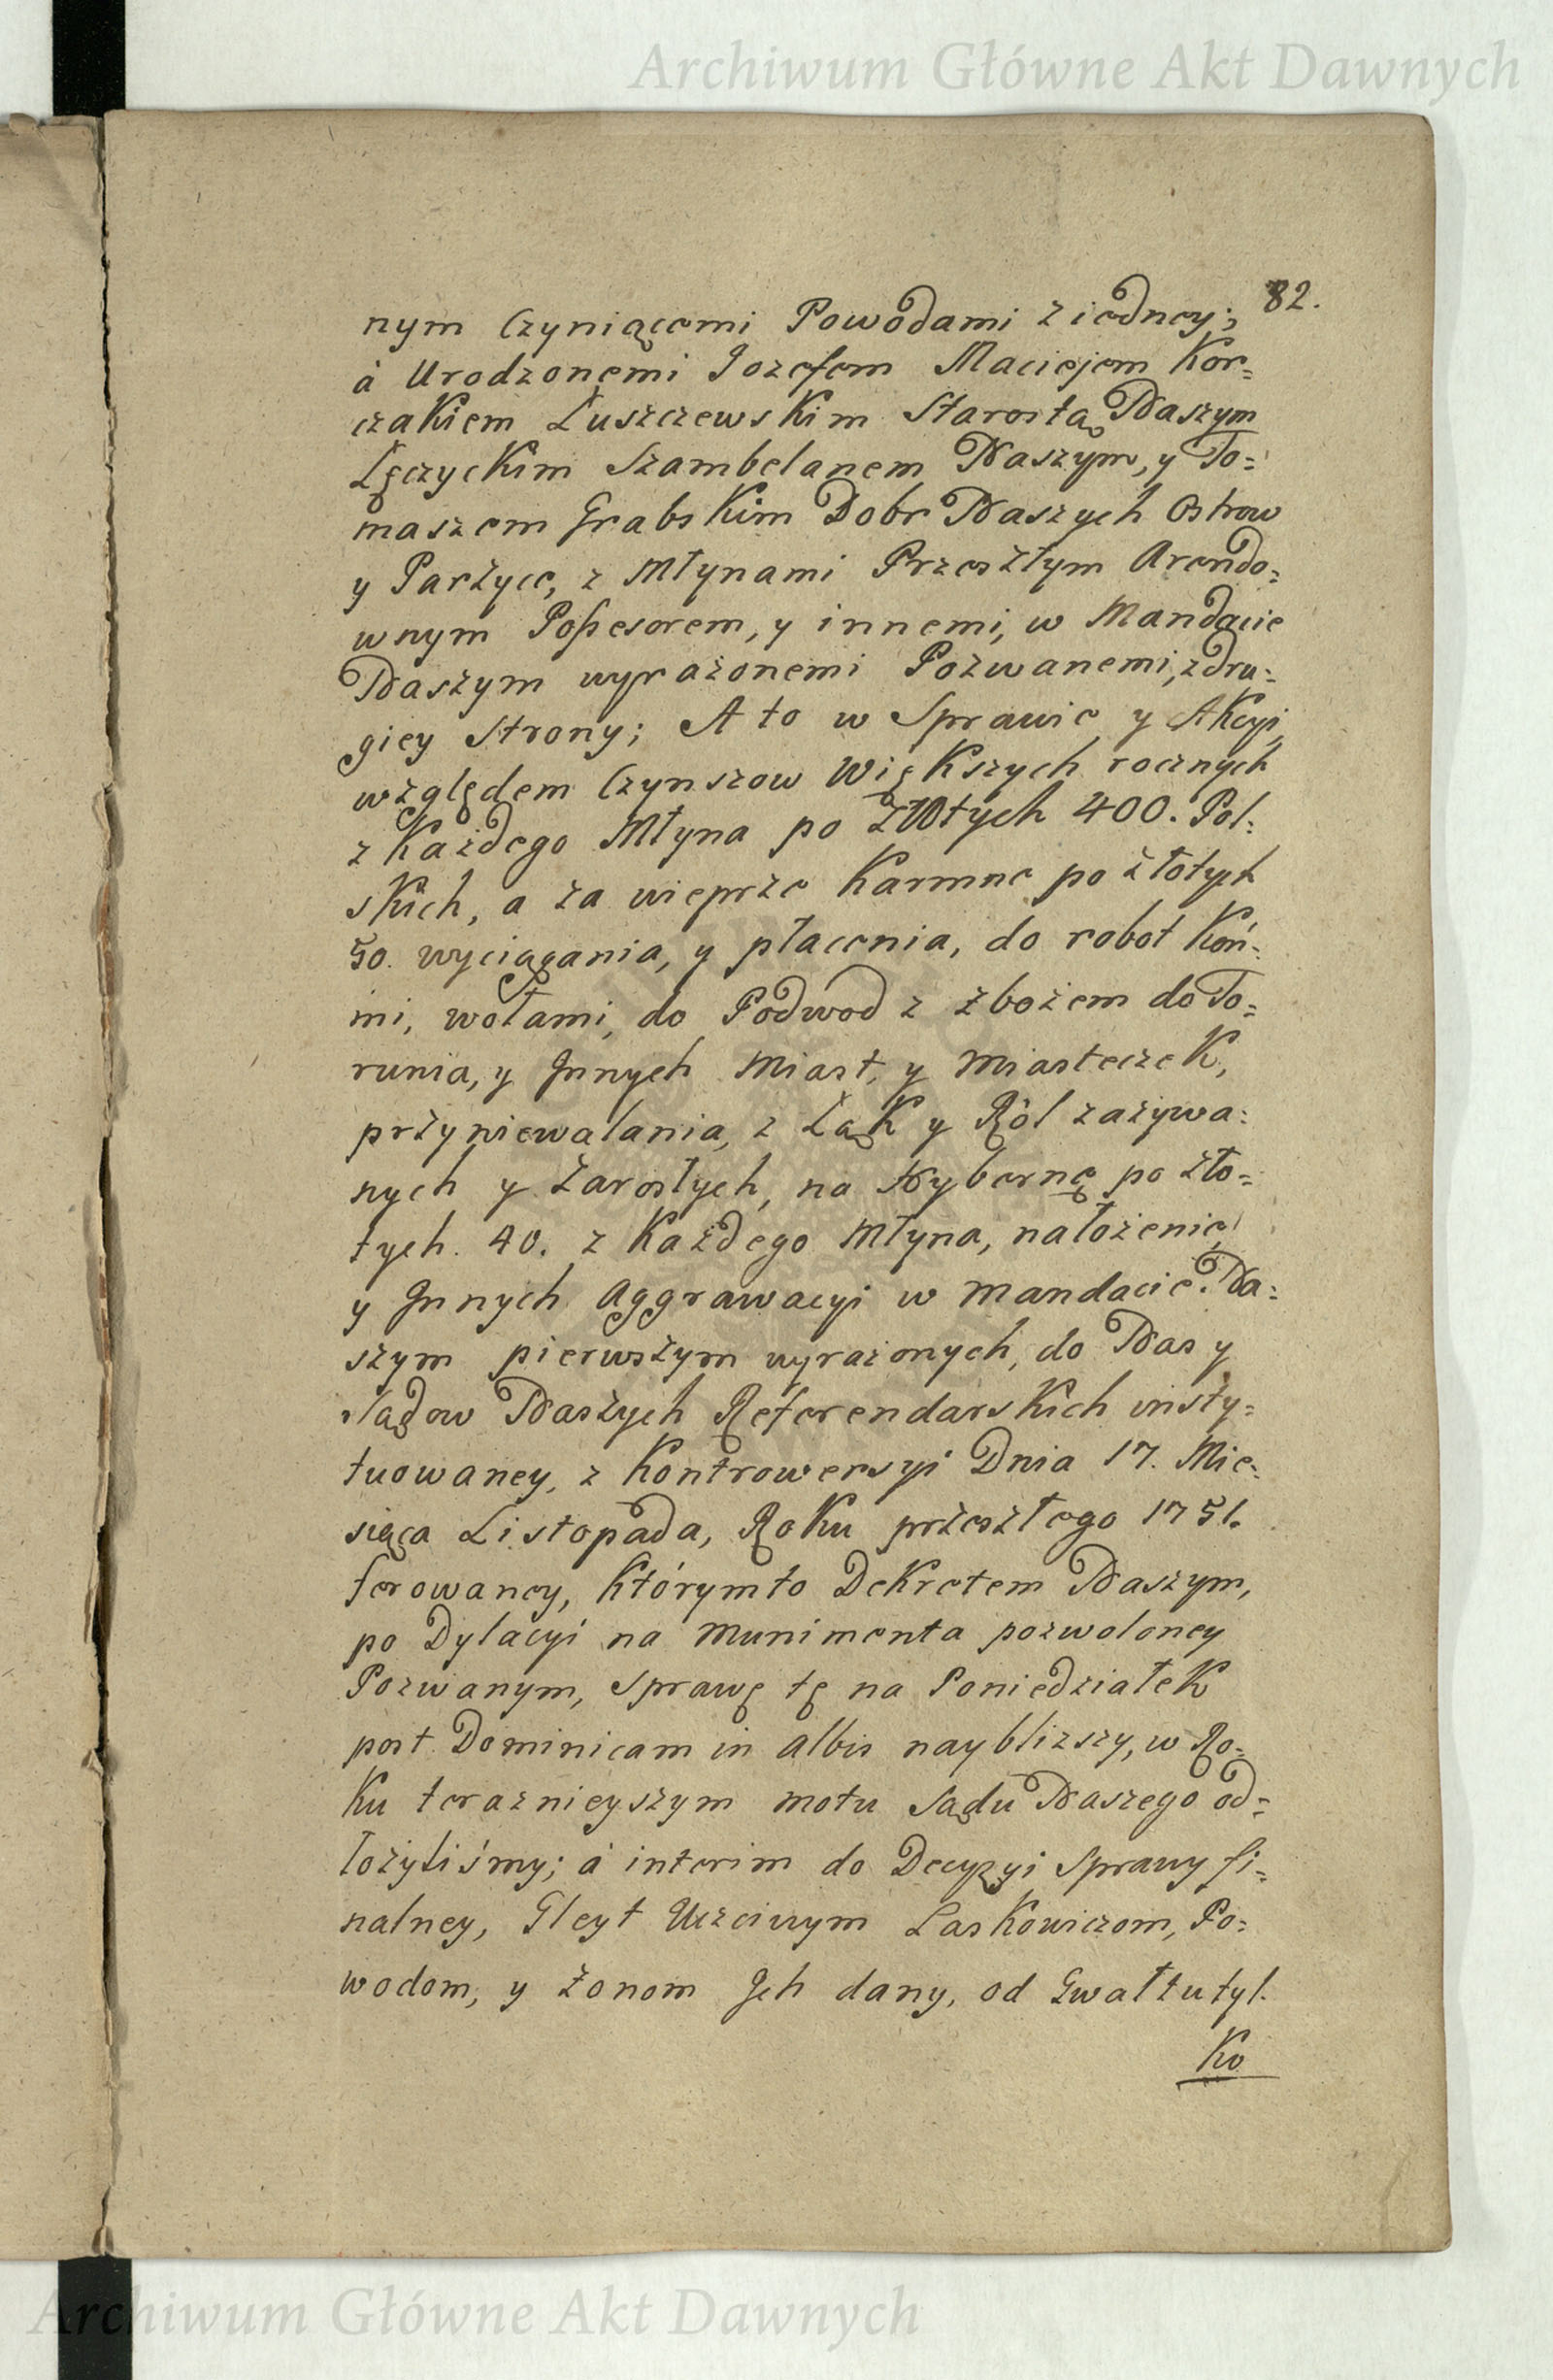 Archiwum Główne Akt Dawnych
82.
nym Czyniącemi Powodami z iedney;
á Urodzonemi Jozefem Maciejem Kor=
czakiem Łuszczewskim Starostą Naszym
Łęczyckim Szambelanem Naszym, y To=
maszem Grabskim Dobr Naszych Ostrow
y Parzyce, z Młynami Przeszłym Arendo=
wnym Possesorem, y innemi, w Mandacie
Naszym wyrażonemi Pozwanemi, z dru=
giey Strony; A to w Sprawie y Akcyi,
względem Czynszow Większych rocznych
z Każdego Młyna po Złotych 400. Pol=
skich, a za wieprze Karmne po złotych
50. wyciągania, y płacenia, do robot Koń=
mi, wołami, do Podwod z zbożem do To=
runia, y Jnnych Miast, y Miasteczek,
przyniewalania, z Łąk y Ról zażywa=
nych y Zarosłych, na Hybernę po zło=
tych. 40. z Każdego Młyna, nałożenie,
y Jnnych Aggrawacyi w Mandacie Na=
szym pierwszym wyrażonych, do Nas y
Sądow Naszych Referendarskich insty=
tuowaney, z Kontrowersyi Dnia 17. Mie=
siąca Listopada, Roku przeszłego 1751.
ferowaney, Którymto Dekretem Naszym,
po Dylacyi na Munimenta pozwoloney
Pozwanym, Sprawę tę na Poniedziałek
post Dominicam in Albis naybliższy, w Ro=
Ku teraznieyszym motu Sądu Naszego od=
łożyliśmy; á interim do Decyzyi Sprawy fi=
nalney, Gleyt Uczciwym Laskowiczom, Po=
wodom, y Żonom Jch dany, od Gwałtu tyl.
Ko
Archiwum Główne Akt Dawnych